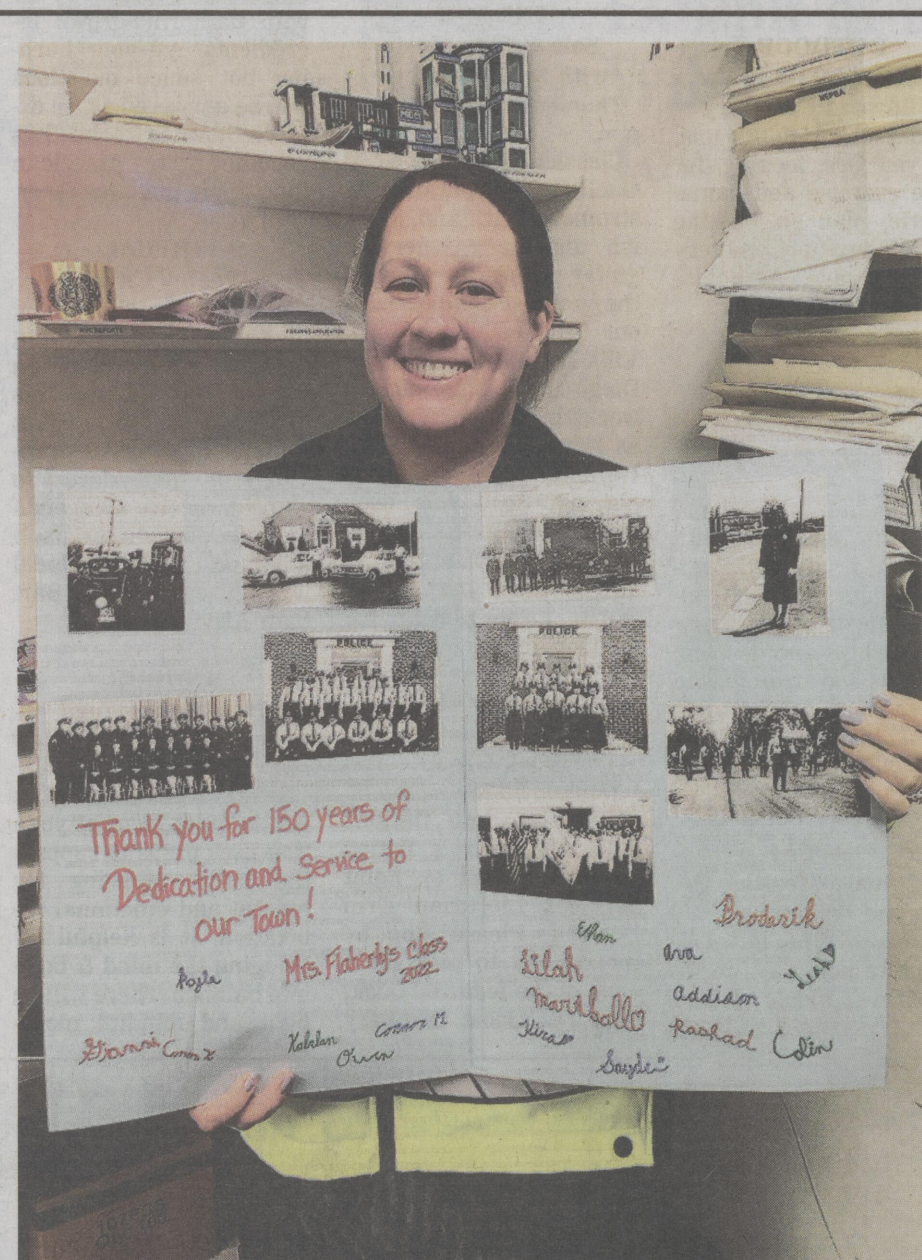 POLICE
POLICE
Thank you for 150 years of
Dedication and Service to
our Town!
Mrs. Flaherty's class
2022
Kayla
Gianni
Connor Z
Owen
Connor M.
Ethan
Lilah
Marshall
Kira
Sayde
Ava
Addison
Rashad
Broderik
Leah
Colin